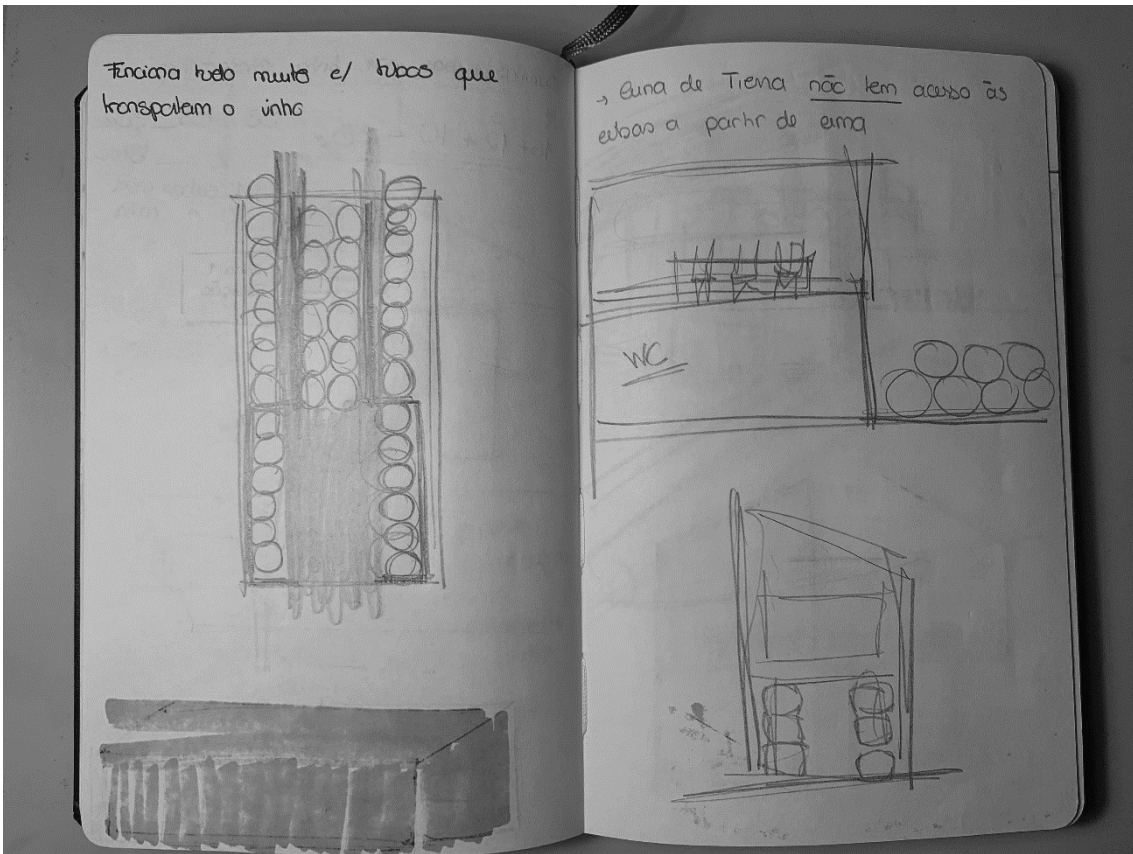 Funciona tudo muito c/ tubos que
transpotam o vinho
→ Cuna de Tiena não tem acesso às
cubas a partir de cima
WC